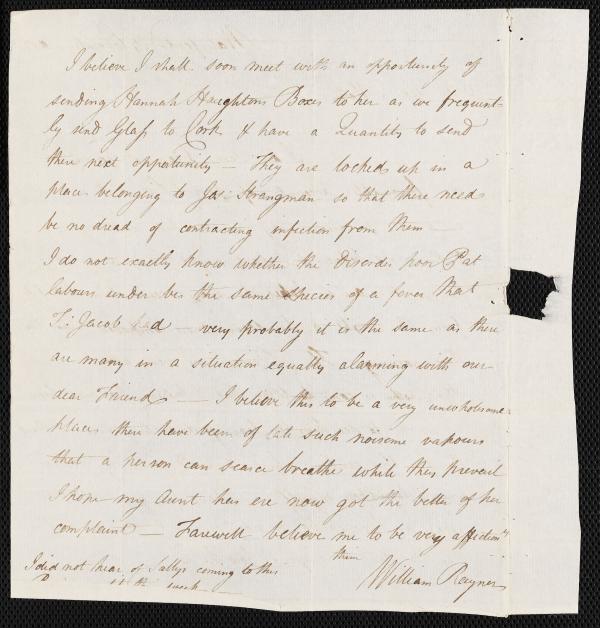 I believe I shall soon meet with an opportunity of
sending Hannah Haughtons Boxes to her as we frequent-
ly send Glass to Cork & have a Quantity to send
there next opportunity — They are locked up in a
place belonging to Jas: Strangman so that there need
be no dread of contracting infection from them
I do not exactly know whether the disorder poor Pat
labours under be the same species of a fever that
T: Jacob had — very probably it is the same as there
are many in a situation equally alarming with our
dear Friend — I believe this to be a very unwholesome
place there have been of late such noisome vapours
that a person can scarce breathe while they prevail
I hope my Aunt has ere now got the better of her
complaint — Farewell believe me to be very affectionly
thine
William Rayner
I did not hear of Sallys coming to this
in the week